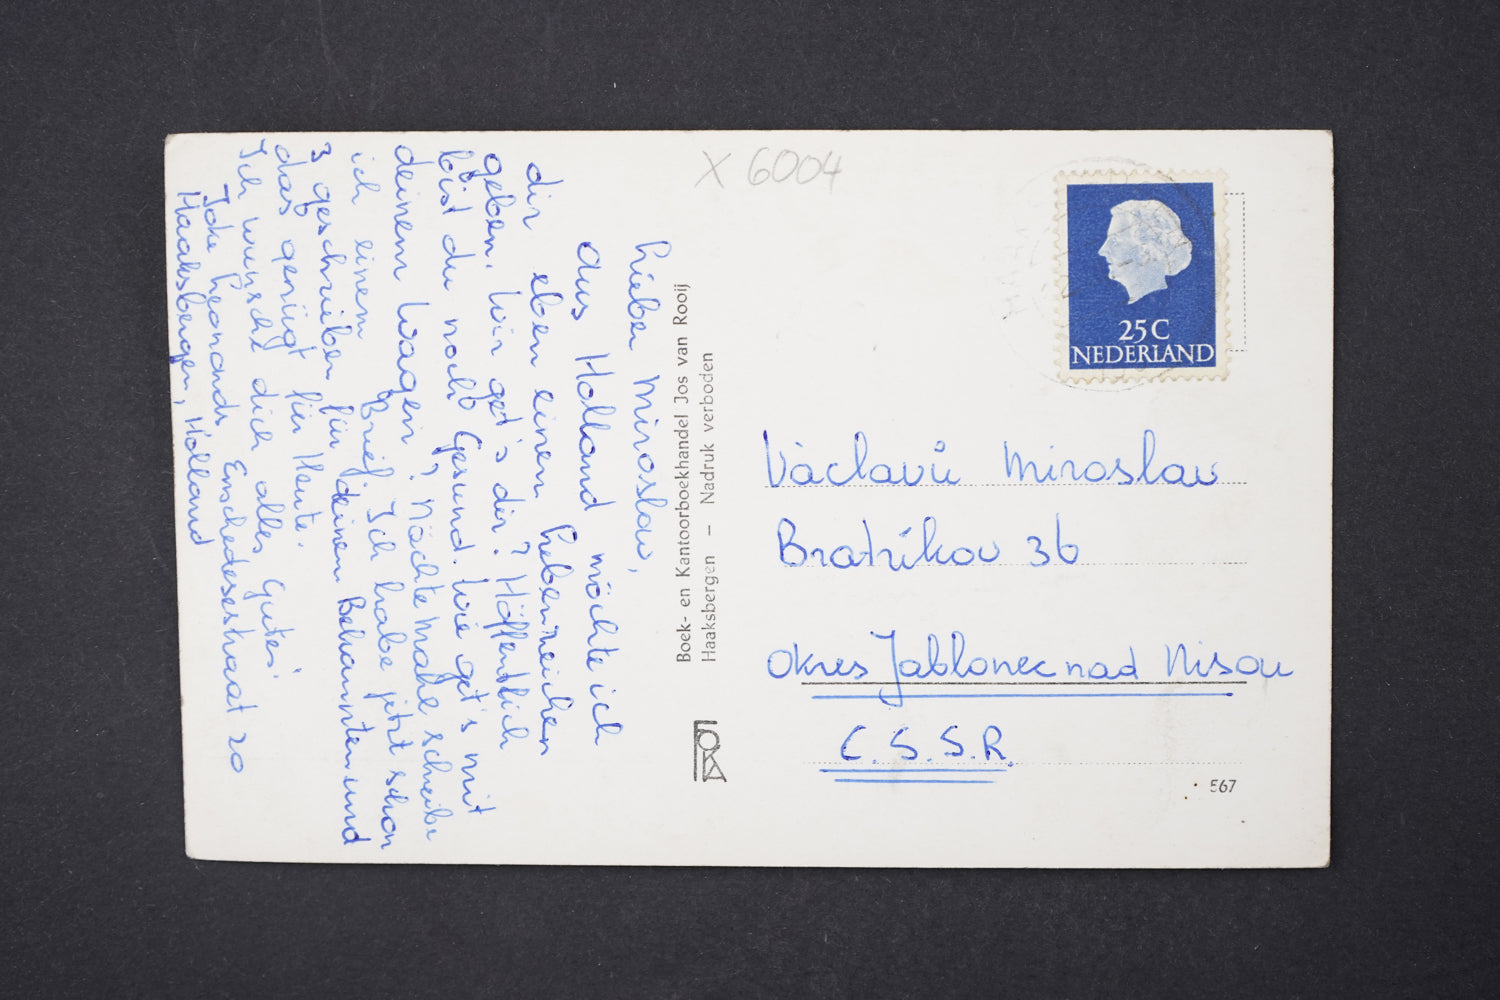 X 6004
25C
NEDERLAND
Václavů Miroslav
Bratříkov 36
Okres Jablonec nad Nisou
C.S.S.R.
567
Boek- en Kantoorboekhandel Jos van Rooij
Haaksbergen – Nadruk verboden
FOKA
Lieber Miroslav,
Aus Holland möchte ich
dir eben einen Lebenzeichen
geben. Wie get's dir? Höffentlich
bist du noch Gesund. Wie get's mit
deinem Wagen? Möchte Mahe schreibe
ich einem Brief. Ich habe jetzt schon
3 geschrieben für deinen Bekannten und
das genügt für Heute.
Ich wünsche dich alles Gutes!
Enschedesestraat 20
Haaksbergen, Holland